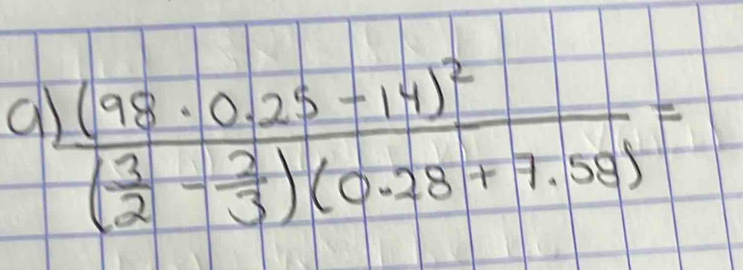 a) (98 · 0.25 - 14)²
(3/2 - 2/3)(0.28 + 7.58) =